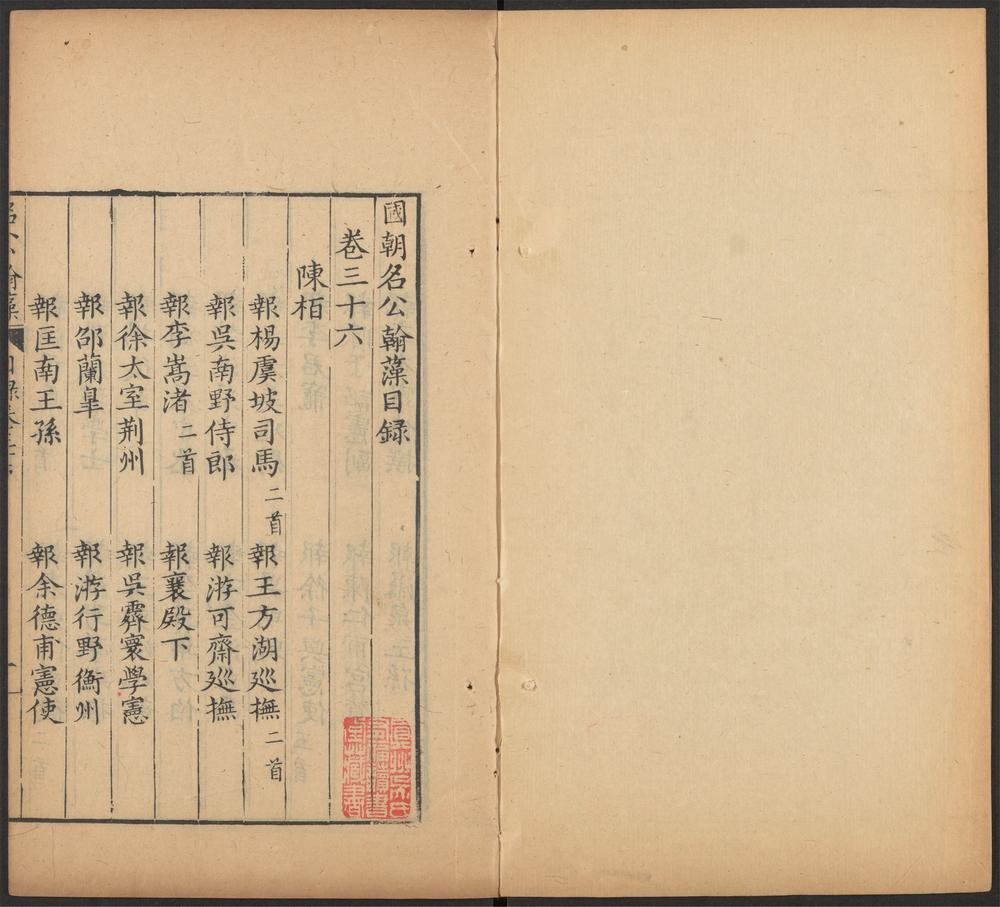 國朝名公翰藻目録
卷三十六
陳栢
報楊虞坡司馬二首
報王方湖廵撫二首
報吳南野侍郎
報游可齋廵撫
報李嵩渚二首
報襄殿下
報徐太室荆州
報吳霽寰學憲
報邵蘭臯
報游行野衡州
報匡南王孫
報余德甫憲使